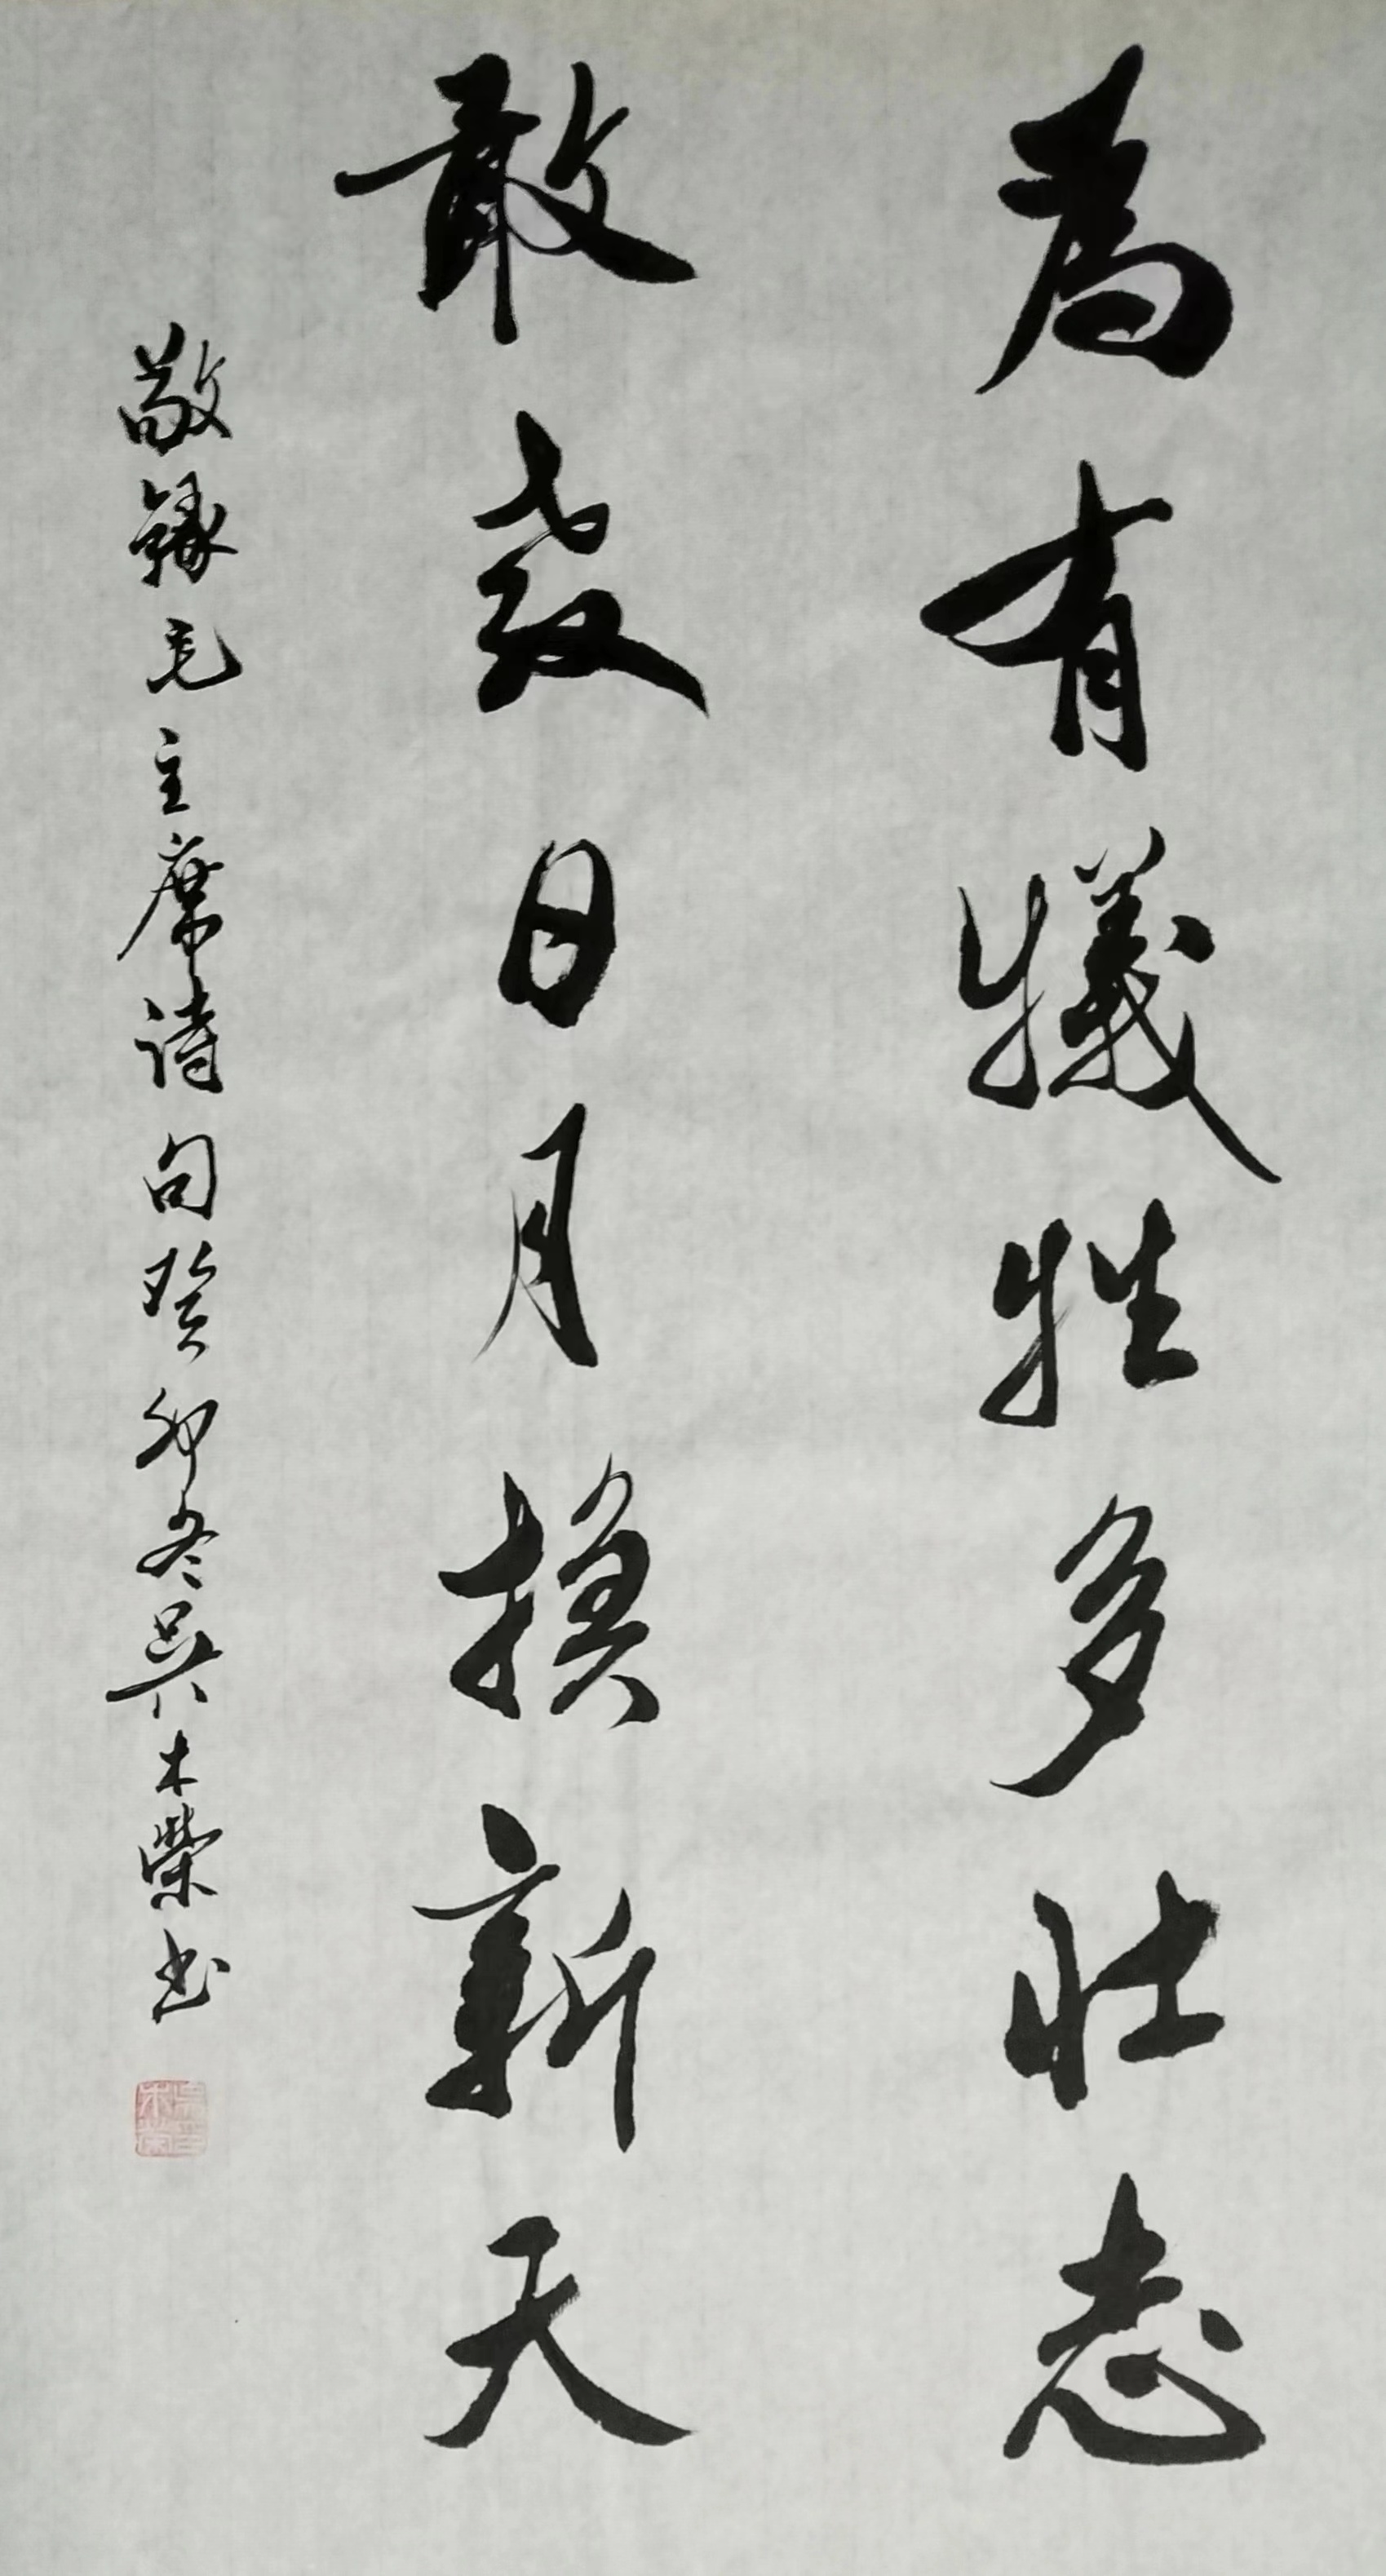 為有犠牲多壮志
敢教日月換新天
敬録毛主席詩句癸卯冬吴木榮书